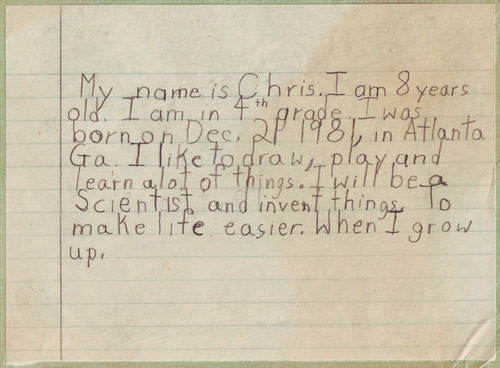 My name is Chris. I am 8 years
old. I am in 4th grade I was
born on Dec. 21 1981, in Atlanta
Ga. I like to draw, play and
learn a lot of things. I will be a
Scientist and invent things. To
make life easier. When I grow
up.